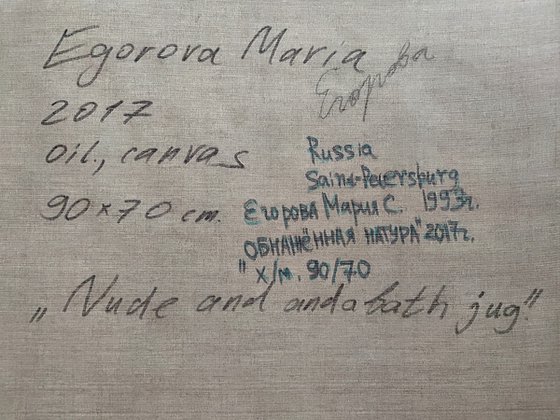 Egorova Maria
Егорова
2017
oil, canvas
90×70 cm.
Russia
Saint-Petersburg
Егорова Мария С. 1993г.
"ОБНАЖЁННАЯ НАТУРА" 2017г.
х/м. 90/70
„Nude and and a bath jug"